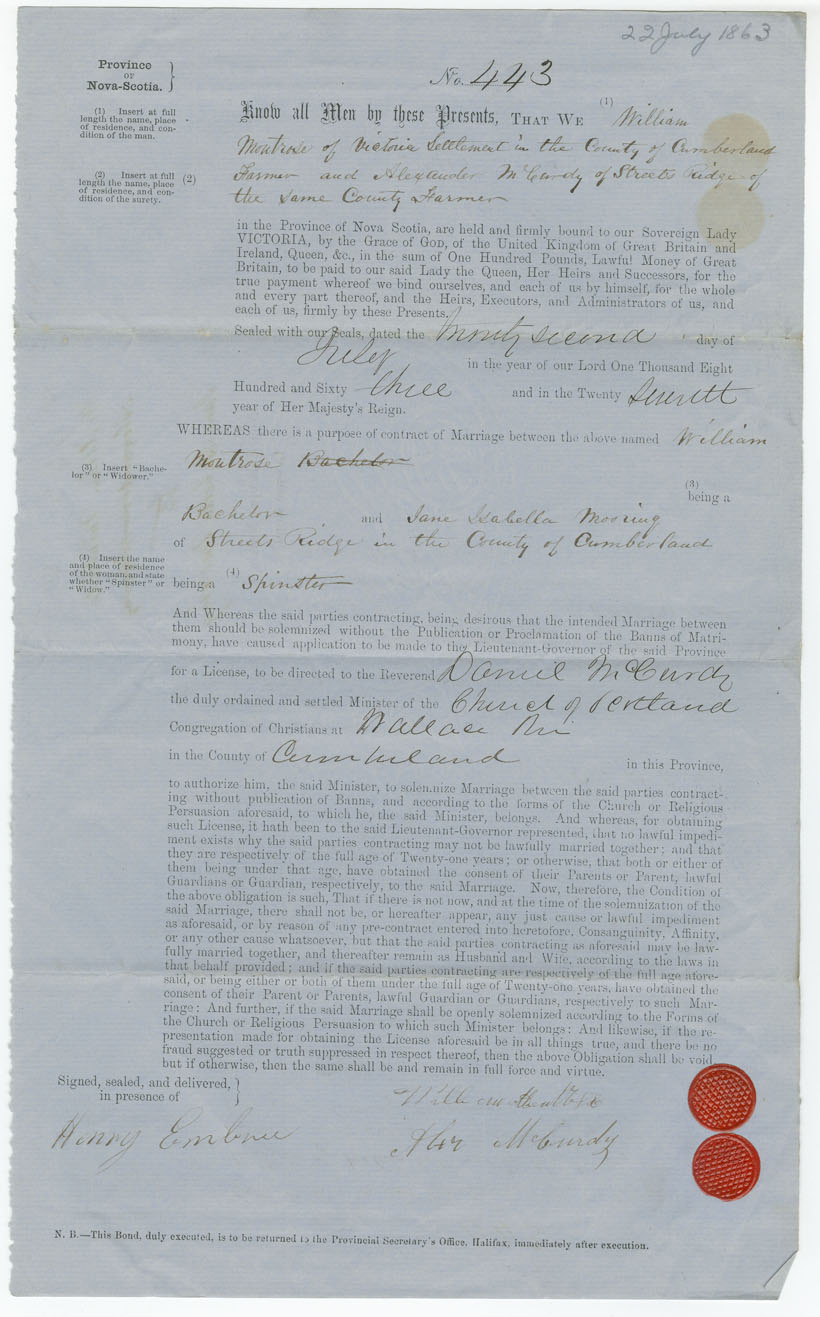 22 July 1863
Province
OF
Nova-Scotia.
No. 443
(1) Insert at full
length the name, place
of residence, and con-
dition of the man.
Know all Men by these Presents, THAT WE (1) William
Montrose of Victoria Settlement in the County of Cumberland
(2) Insert at full
length the name, place
of residence, and con-
dition of the surety.
(2) Farmer and Alexander McCurdy of Streets Ridge of
the same County Farmer
in the Province of Nova Scotia, are held and firmly bound to our Sovereign Lady
VICTORIA, by the Grace of GOD, of the United Kingdom of Great Britain and
Ireland, Queen, &c., in the sum of One Hundred Pounds, Lawful Money of Great
Britain, to be paid to our said Lady the Queen, Her Heirs and Successors, for the
true payment whereof we bind ourselves, and each of us by himself, for the whole
and every part thereof, and the Heirs, Executors, and Administrators of us, and
each of us, firmly by these Presents.
Sealed with our Seals, dated the second day of
July in the year of our Lord One Thousand Eight
Hundred and Sixty three and in the Twenty
year of Her Majesty's Reign.
WHEREAS there is a purpose of contract of Marriage between the above named William
(3) Insert "Bache-
lor" or "Widower."
Montrose Bachelor
(3)
being a
Bachelor and Jane Isabella Mooring
of Streets Ridge in the County of Cumberland
(4) Insert the name
and place of residence
of the woman, and state
whether "Spinster" or
"Widow."
being a (4) Spinster
And Whereas the said parties contracting, being desirous that the intended Marriage between
them should be solemnized without the Publication or Proclamation of the Banns of Matri-
mony, have caused application to be made to the Lieutenant-Governor of the said Province
for a License, to be directed to the Reverend Daniel McCurdy
the duly ordained and settled Minister of the Church of Scotland
Congregation of Christians at Wallace
in the County of Cumberland in this Province,
to authorize him, the said Minister, to solemnize Marriage between the said parties contract-
ing without publication of Banns, and according to the forms of the Church or Religious
Persuasion aforesaid, to which he, the said Minister, belongs. And whereas, for obtaining
such License, it hath been to the said Lieutenant-Governor represented, that no lawful impedi-
ment exists why the said parties contracting may not be lawfully married together; and that
they are respectively of the full age of Twenty-one years; or otherwise, that both or either of
them being under that age, have obtained the consent of their Parents or Parent, lawful
Guardians or Guardian, respectively, to the said Marriage. Now, therefore, the Condition of
the above obligation is such, That if there is not now, and at the time of the solemnization of the
said Marriage, there shall not be, or hereafter appear, any just cause or lawful impediment
as aforesaid, or by reason of any pre-contract entered into heretofore, Consanguinity, Affinity,
or any other cause whatsoever, but that the said parties contracting as aforesaid may be law-
fully married together, and thereafter remain as Husband and Wife, according to the laws in
that behalf provided; and if the said parties contracting are respectively of the full age afore-
said, or being either or both of them under the full age of Twenty-one years, have obtained the
consent of their Parent or Parents, lawful Guardian or Guardians, respectively to such Mar-
riage: And further, if the said Marriage shall be openly solemnized according to the Forms of
the Church or Religious Persuasion to which such Minister belongs: And likewise, if the re-
presentation made for obtaining the License aforesaid be in all things true, and there be no
fraud suggested or truth suppressed in respect thereof, then the above Obligation shall be void,
but if otherwise, then the same shall be and remain in full force and virtue.
Signed, sealed, and delivered,
in presence of
Henry Embree
Alex McCurdy
N. B.—This Bond, duly executed, is to be returned to the Provincial Secretary's Office, Halifax, immediately after execution.